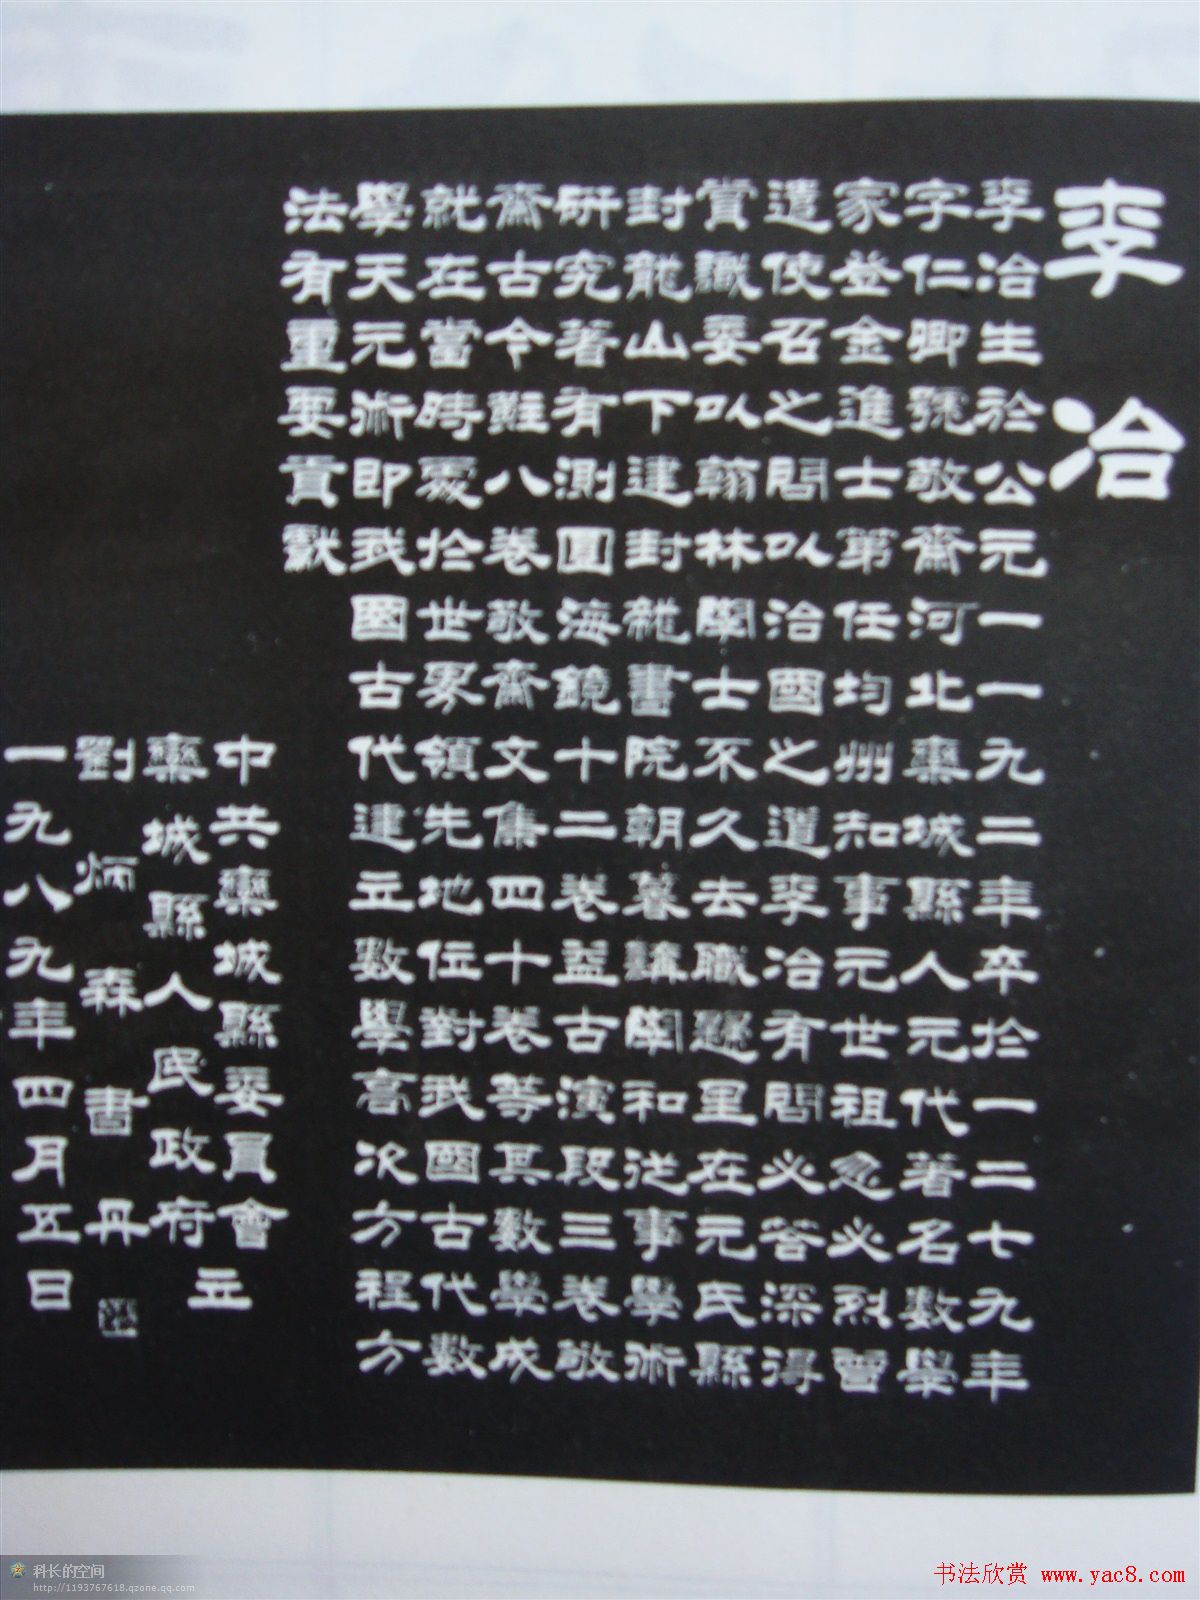 李冶
李冶生於公元一一九二年卒於一二七九年
字仁卿號敬齋河北欒城縣人元代著名數學
家登金進士第任均州知事元世祖忽必烈曾
遣使召之問以治國之道李冶有問必答深得
賞識委以翰林學士不久去職還里在元氏縣
封龍山下建封龍書院朝暮講學和從事學術
研究著有測圓海鏡十二卷益古演段三卷敬
齋古今黈八卷敬齋文集四十卷等其數學成
就在當時處於世界領先地位對我國古代數
學天元術即我國古代建立數學高次方程方
法有重要貢獻
中共欒城縣委員會
欒城縣人民政府
立
劉炳森書丹
一九八九年四月五日
科长的空间
http://1193767618.qzone.qq.com
书法欣赏 www.yac8.com